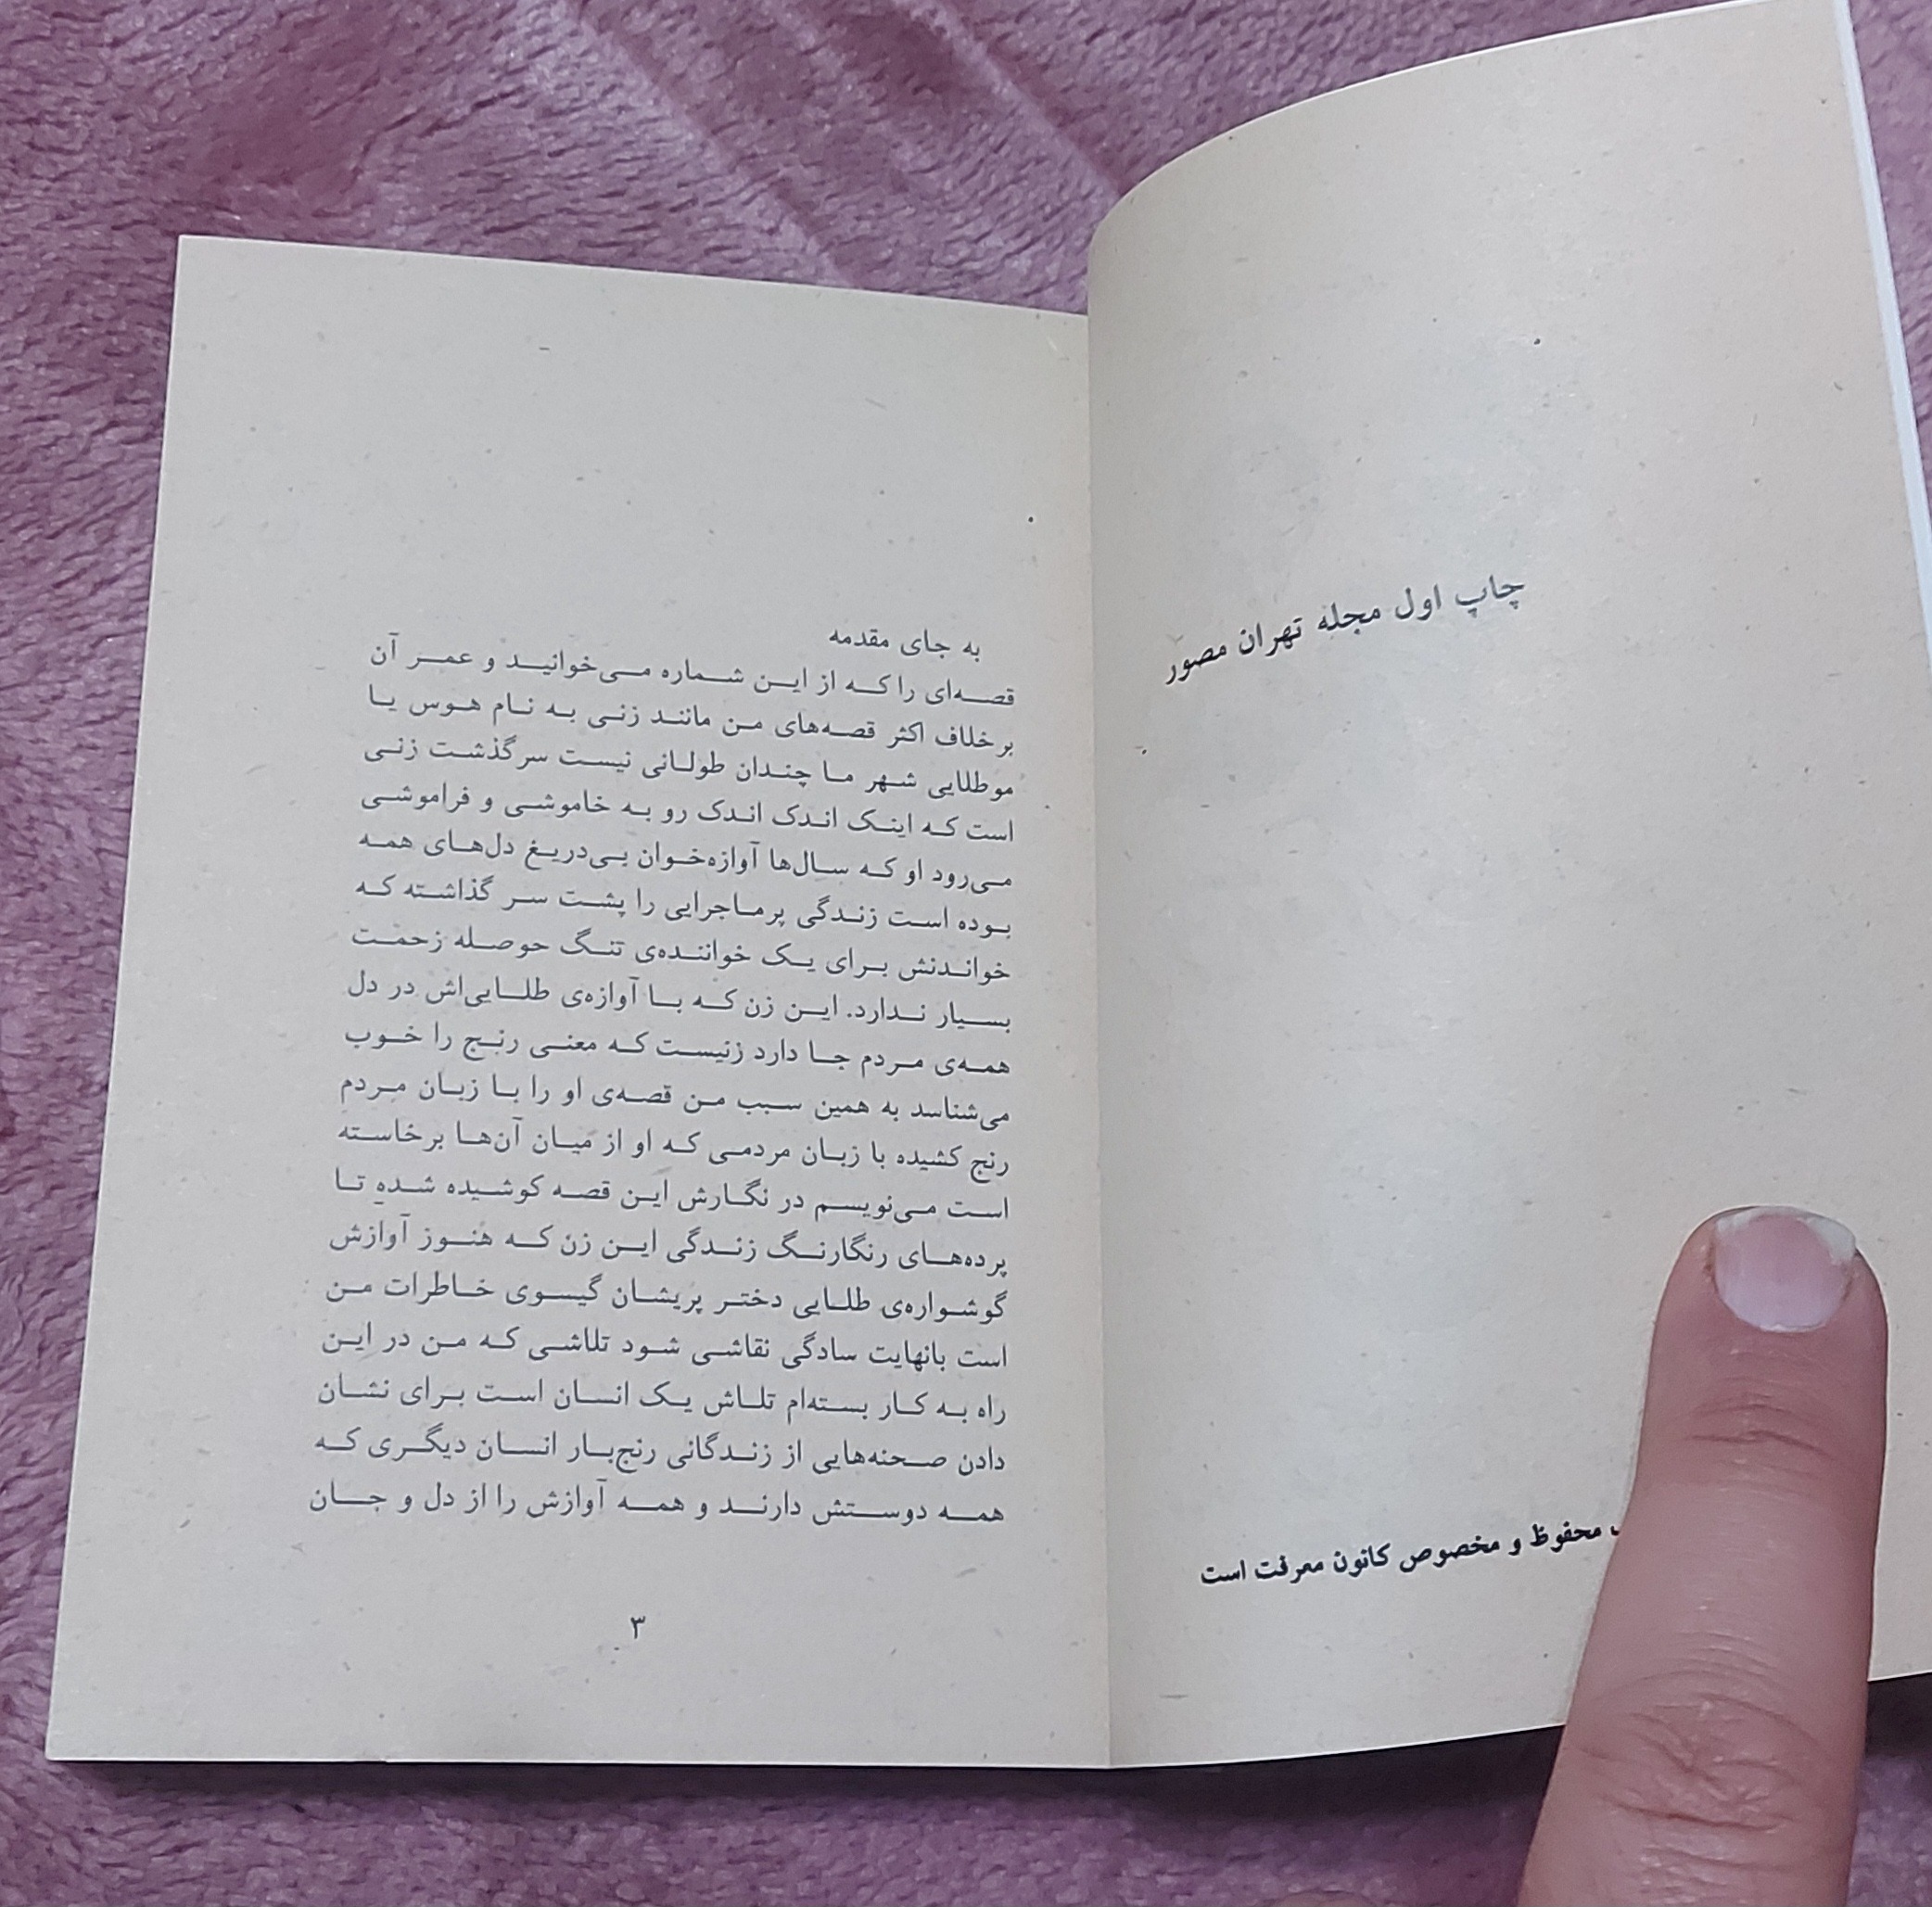 چاپ اول مجله تهران مصور
محفوظ و مخصوص کانون معرفت است
به جای مقدمه
قصه‌ای را که از این شماره می‌خوانید و عمر آن
برخلاف اکثر قصه‌های من مانند زنی به نام هوس یا
موطلایی شهر ما چندان طولانی نیست سرگذشت زنی
است که اینک اندک اندک رو به خاموشی و فراموشی
می‌رود او که سال‌ها آوازه‌خوان بی‌دریغ دل‌های همه
بوده است زندگی پرماجرایی را پشت سر گذاشته که
خواندنش برای یک خواننده‌ی تنگ حوصله زحمت
بسیار ندارد. این زن که با آوازه‌ی طلایی‌اش در دل
همه‌ی مردم جا دارد زنیست که معنی رنج را خوب
می‌شناسد به همین سبب من قصه‌ی او را با زبان مردم
رنج کشیده با زبان مردمی که او از میان آن‌ها برخاسته
است می‌نویسم در نگارش این قصه کوشیده شده تا
پرده‌های رنگارنگ زندگی این زن که هنوز آوازش
گوشواره‌ی طلایی دختر پریشان گیسوی خاطرات من
است بانهایت سادگی نقاشی شود تلاشی که من در این
راه به کار بسته‌ام تلاش یک انسان است برای نشان
دادن صحنه‌هایی از زندگانی رنج‌بار انسان دیگری که
همه دوستش دارند و همه آوازش را از دل و جان
۳